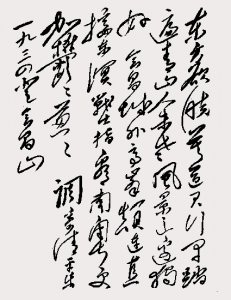 东方欲晓莫道君行早踏
遍青山人未老风景这边独
好会昌城外高峰颠连直
接东溟战士指看南粤更
加郁々葱々 调寄清平乐
一九三四登会昌山